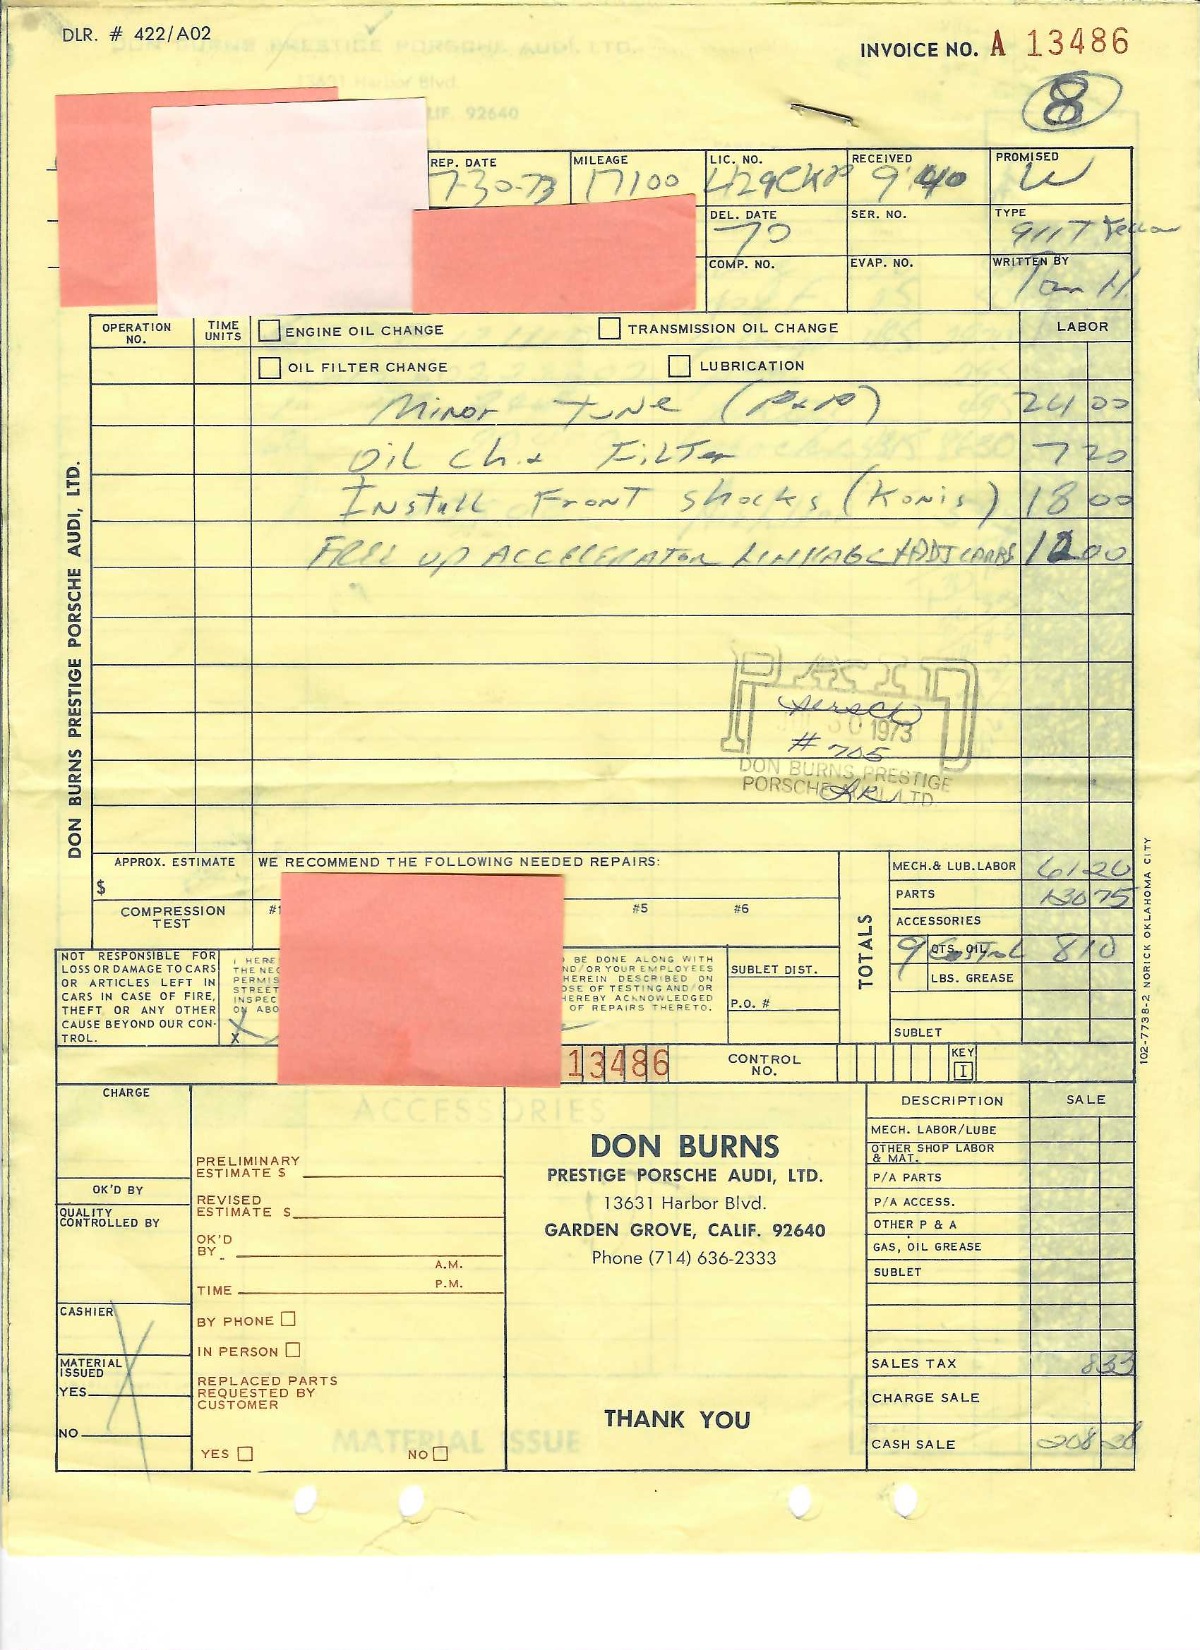 DLR. # 422/A02
INVOICE NO. A 13486
8
IF. 92640
REP. DATE 7-30-73
MILEAGE 17100
LIC. NO. 429CKP
RECEIVED 9:40
PROMISED W
DEL. DATE 70
SER. NO.
TYPE 911T Yellow
COMP. NO.
EVAP. NO.
WRITTEN BY Tom H.
OPERATION NO.
TIME UNITS
ENGINE OIL CHANGE
TRANSMISSION OIL CHANGE
LABOR
OIL FILTER CHANGE
LUBRICATION
Minor Tune (P&P) 24 00
Oil Ch. & Filter 7 20
Install Front Shocks (Konis) 18 00
FREE UP ACCELERATOR LINKAGE & ADJ CARBS 12 00
DON BURNS PRESTIGE PORSCHE AUDI, LTD.
PAID
30 1973
# 705
DON BURNS PRESTIGE
PORSCHE AUDI, LTD.
APPROX. ESTIMATE
$
WE RECOMMEND THE FOLLOWING NEEDED REPAIRS:
COMPRESSION TEST
#1
#5
#6
TOTALS
MECH. & LUB. LABOR 61 20
PARTS 130 75
ACCESSORIES
9 QTS. OIL Castrol 8 10
LBS. GREASE
SUBLET
NOT RESPONSIBLE FOR
LOSS OR DAMAGE TO CARS
OR ARTICLES LEFT IN
CARS IN CASE OF FIRE,
THEFT OR ANY OTHER
CAUSE BEYOND OUR CON-
TROL.
I HERE
THE NEC
PERMIS
STREET
INSPEC
ON ABO
X
BE DONE ALONG WITH
ND/OR YOUR EMPLOYEES
HEREIN DESCRIBED ON
OSE OF TESTING AND/OR
HEREBY ACKNOWLEDGED
OF REPAIRS THERETO.
SUBLET DIST.
P.O. #
102-7738-2 NORICK OKLAHOMA CITY
13486
CONTROL NO.
KEY
I
CHARGE
OK'D BY
QUALITY CONTROLLED BY
CASHIER
MATERIAL ISSUED
YES
NO
ACCESSORIES
PRELIMINARY ESTIMATE $
REVISED ESTIMATE $
OK'D BY
A.M.
TIME P.M.
BY PHONE
IN PERSON
REPLACED PARTS
REQUESTED BY
CUSTOMER
YES NO
MATERIAL ISSUE
DON BURNS
PRESTIGE PORSCHE AUDI, LTD.
13631 Harbor Blvd.
GARDEN GROVE, CALIF. 92640
Phone (714) 636-2333
THANK YOU
DESCRIPTION SALE
MECH. LABOR/LUBE
OTHER SHOP LABOR & MAT.
P/A PARTS
P/A ACCESS.
OTHER P & A
GAS, OIL GREASE
SUBLET
SALES TAX 8 33
CHARGE SALE
CASH SALE 208 38